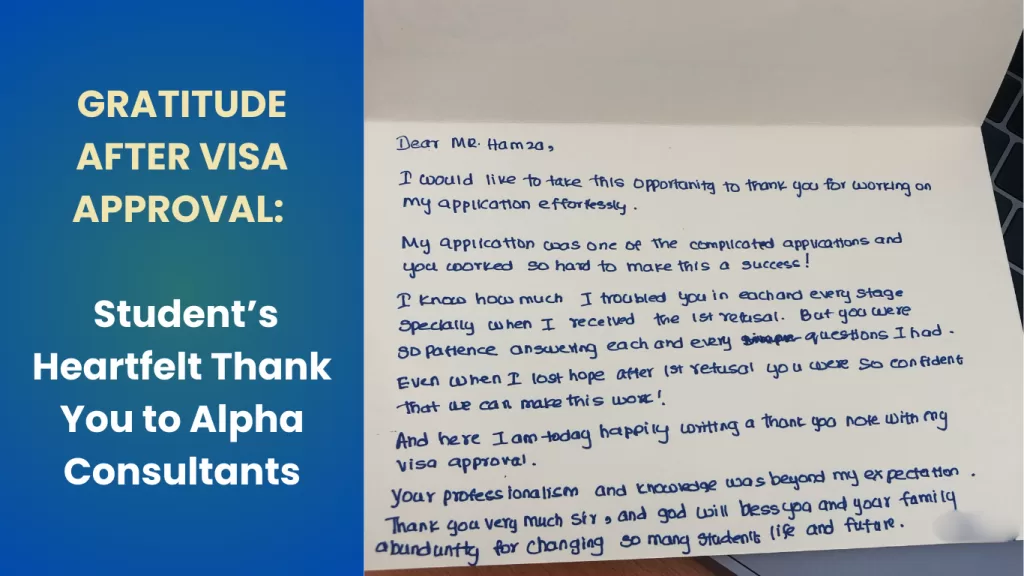 GRATITUDE
AFTER VISA
APPROVAL:
Student's
Heartfelt Thank
You to Alpha
Consultants
Dear MR. Hamza,
I would like to take this opportunity to thank you for working on
my application effortlessly.
My application was one of the complicated applications and
you worked so hard to make this a success!
I know how much I troubled you in each and every stage
specially when I received the 1st refusal. But you were
so patience answering each and every simple questions I had.
Even when I lost hope after 1st refusal you were so confident
that we can make this work!
And here I am today happily writing a thank you note with my
visa approval.
Your professionalism and knowledge was beyond my expectation.
Thank you very much sir, and god will bless you and your family
abunduntly for changing so many students life and future.